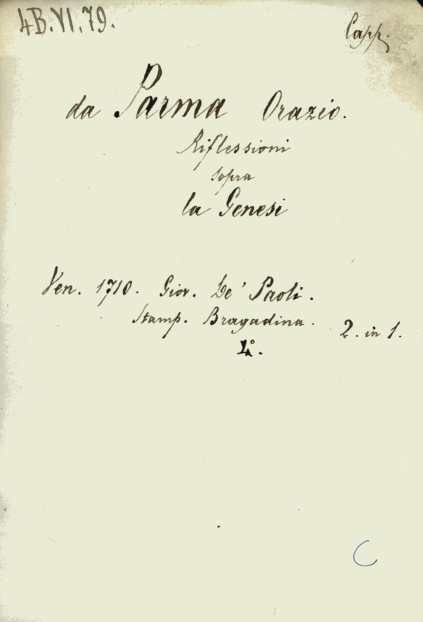 4B.VI.79.
Capp.
da Parma Orazio.
Riflessioni
sopra
la Genesi
Ven. 1710. Giov. De' Paoli.
Stamp. Bragadina. 2. in 1.
4°.
C